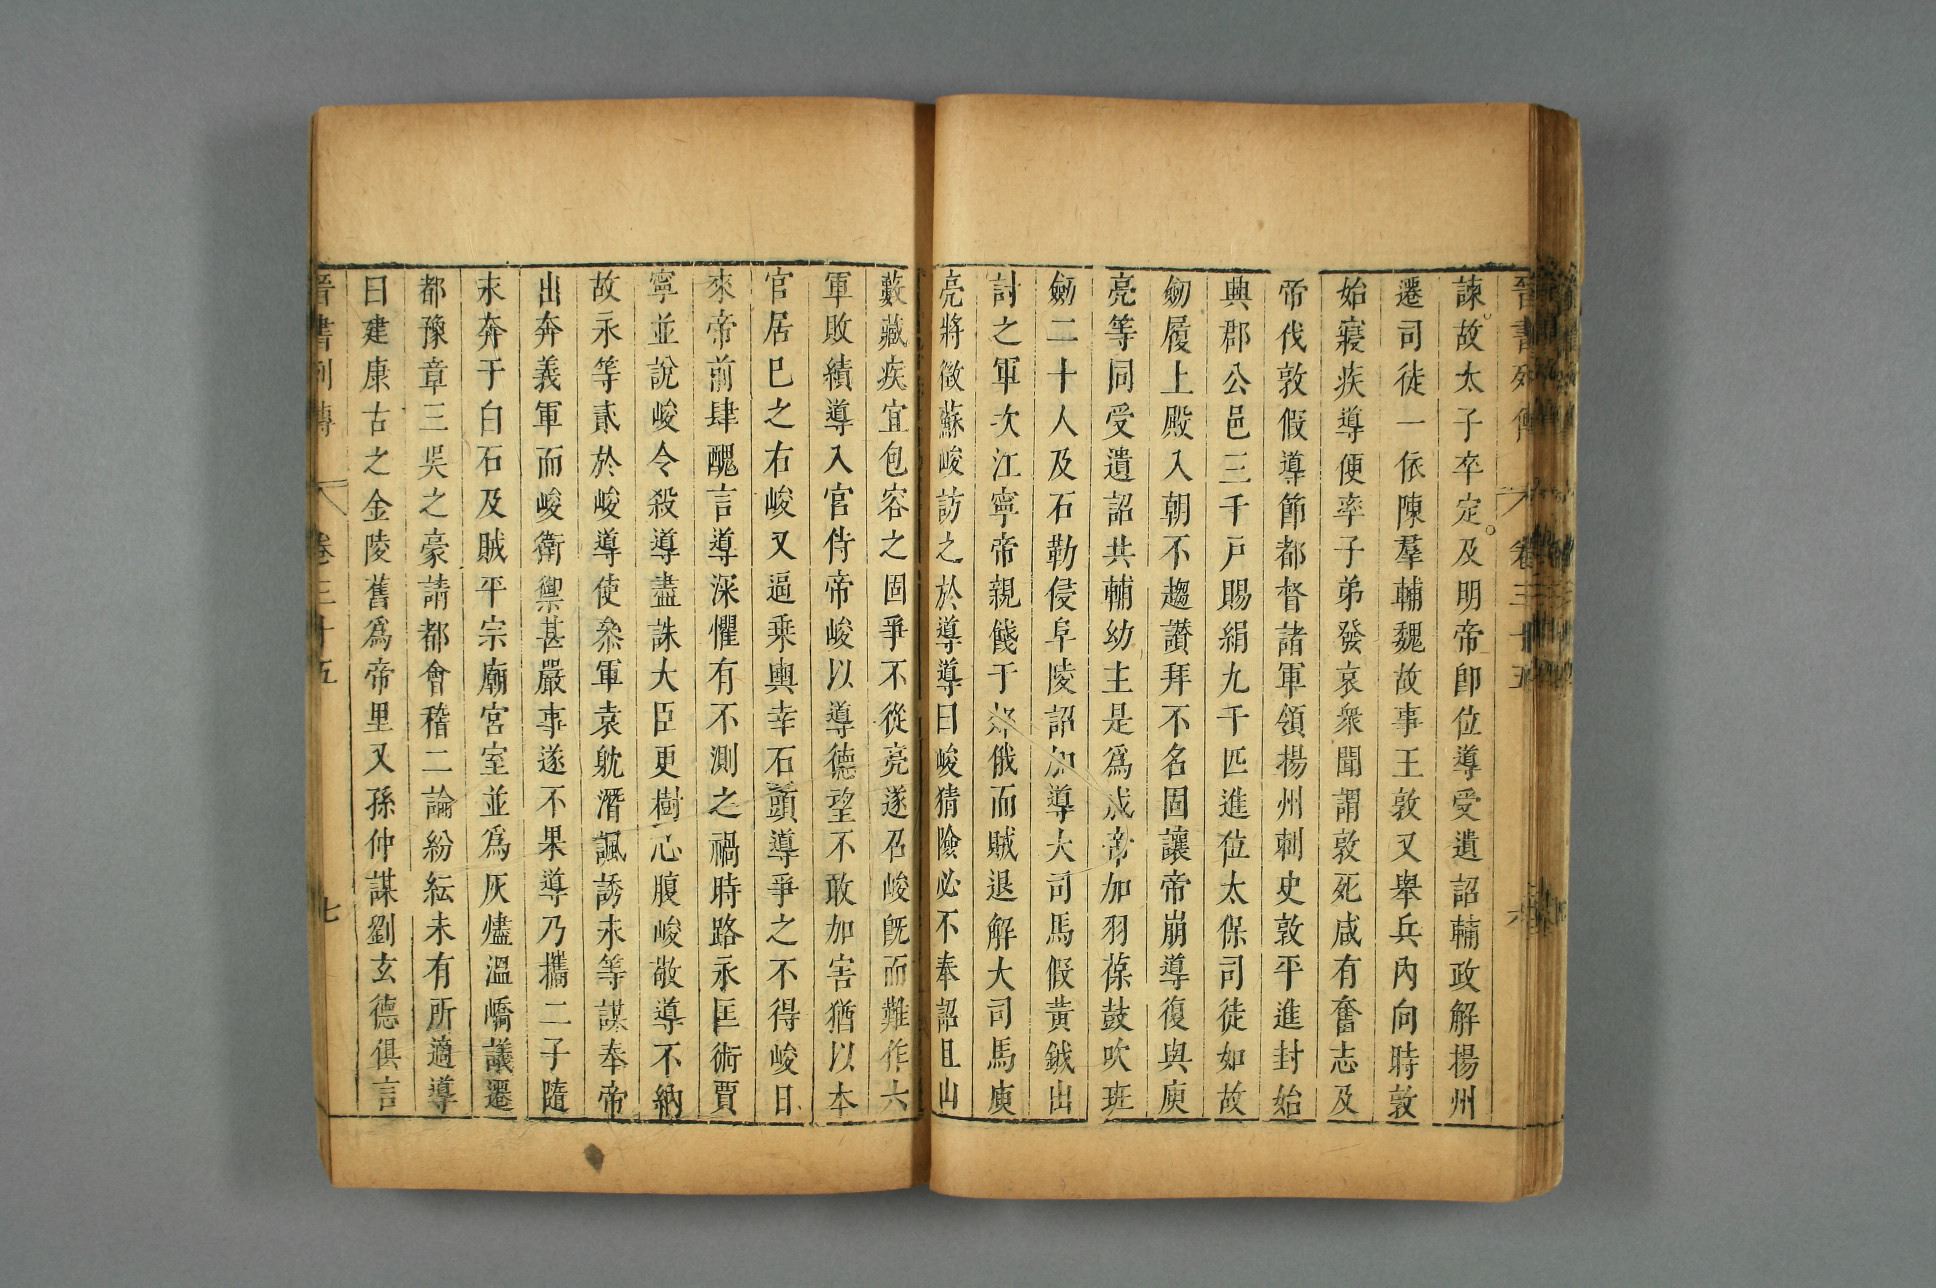 晉書列傳 卷三十五 六
諫故太子卒定及明帝卽位導受遺詔輔政解揚州
遷司徒一依陳羣輔魏故事王敦又舉兵內向時敦
始寢疾導便率子弟發哀衆聞謂敦死咸有奮志及
帝伐敦假導節都督諸軍領揚州刺史敦平進封始
興郡公邑三千戸賜絹九千匹進位太保司徒如故
劒履上殿入朝不趨讃拜不名固讓帝崩導復與庾
亮等同受遺詔共輔幼主是爲成帝加羽葆鼓吹班
劒二十人及石勒侵阜陵詔加導大司馬假黃鉞出
討之軍次江寧帝親餞于郊俄而賊退解大司馬庾
亮將徵蘇峻訪之於導導曰峻猜險必不奉詔且山
藪藏疾宜包容之固爭不從亮遂召峻旣而難作六
軍敗績導入宮侍帝峻以導德望不敢加害猶以本
官居已之右峻又逼乗輿幸石頭導爭之不得峻日
來帝前肆醜言導深懼有不測之禍時路永匡術賈
寧並說峻令殺導盡誅大臣更樹心腹峻敬導不納
故永等貳於峻導使叅軍袁躭潛諷誘永等謀奉帝
出奔義軍而峻衛禦甚嚴事遂不果導乃攜二子隨
永奔于白石及賊平宗廟宮室並爲灰燼溫嶠議遷
都豫章三吳之豪請都會稽二論紛紜未有所適導
曰建康古之金陵舊爲帝里又孫仲謀劉玄德俱言
晉書列傳 卷三十五 七